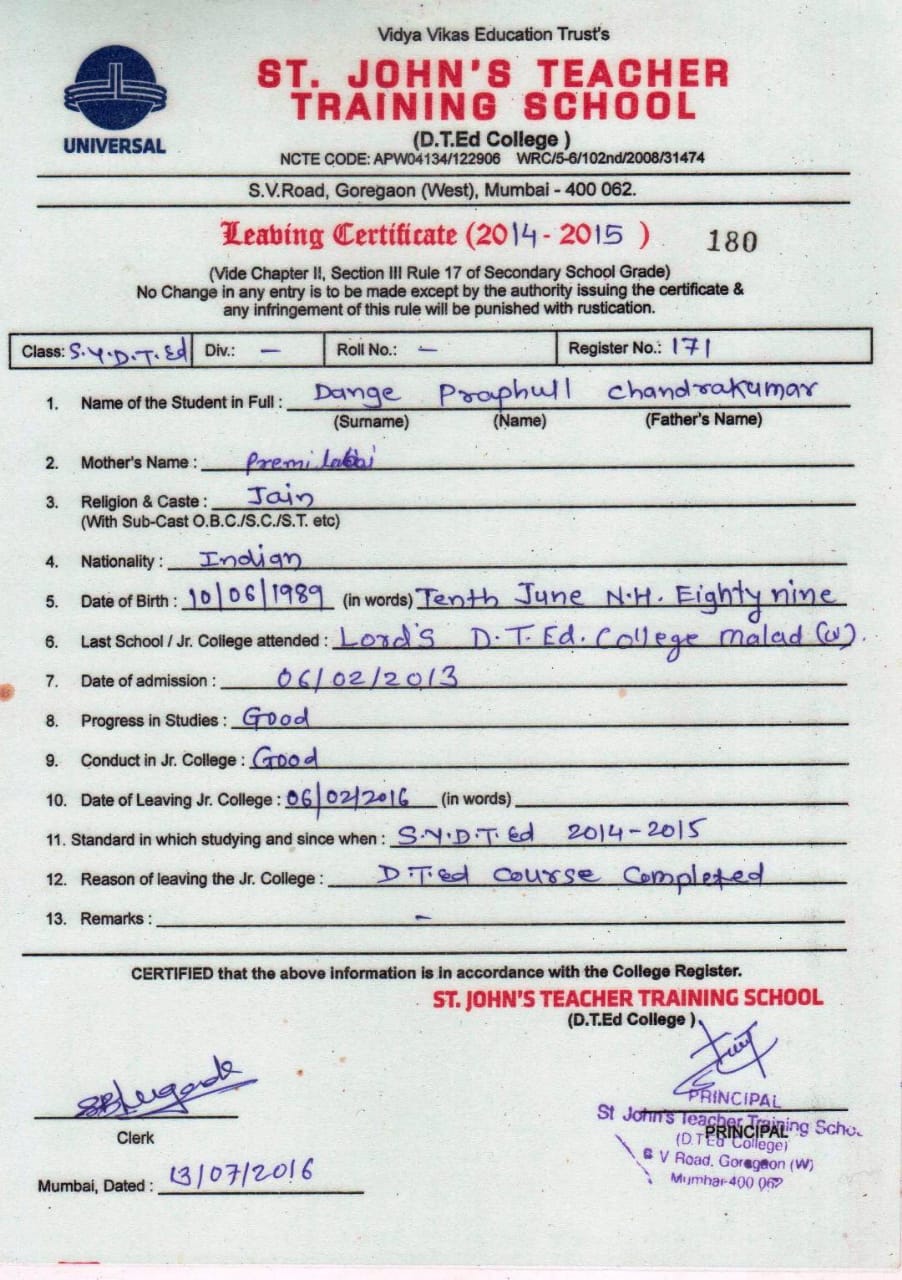 Vidya Vikas Education Trust's
ST. JOHN'S TEACHER
TRAINING SCHOOL
UNIVERSAL
(D.T.Ed College )
NCTE CODE: APW04134/122906 WRC/5-6/102nd/2008/31474
S.V.Road, Goregaon (West), Mumbai - 400 062.
Leaving Certificate (2014 - 2015 ) 180
(Vide Chapter II, Section III Rule 17 of Secondary School Grade)
No Change in any entry is to be made except by the authority issuing the certificate &
any infringement of this rule will be punished with rustication.
Class: S.Y.D.T.Ed Div.: - Roll No.: - Register No.: 171
1. Name of the Student in Full : Dange Praphull Chandrakumar
(Surname) (Name) (Father's Name)
2. Mother's Name : Premilabai
3. Religion & Caste : Jain
(With Sub-Cast O.B.C./S.C./S.T. etc)
4. Nationality : Indian
5. Date of Birth : 10/06/1989 (in words) Tenth June N.H. Eighty nine
6. Last School / Jr. College attended : Lord's D.T.Ed. College Malad (W).
7. Date of admission : 06/02/2013
8. Progress in Studies : Good
9. Conduct in Jr. College : Good
10. Date of Leaving Jr. College : 06/02/2016 (in words)
11. Standard in which studying and since when : S.Y.D.T.Ed 2014-2015
12. Reason of leaving the Jr. College : D.T.ed course Completed
13. Remarks : -
CERTIFIED that the above information is in accordance with the College Register.
ST. JOHN'S TEACHER TRAINING SCHOOL
(D.T.Ed College )
PRINCIPAL
St John's Teacher Training Schoo
PRINCIPAL
(D.T.Ed College)
S V Road, Goregaon (W)
Mumbai-400 062
Clerk
Mumbai, Dated : 13/07/2016